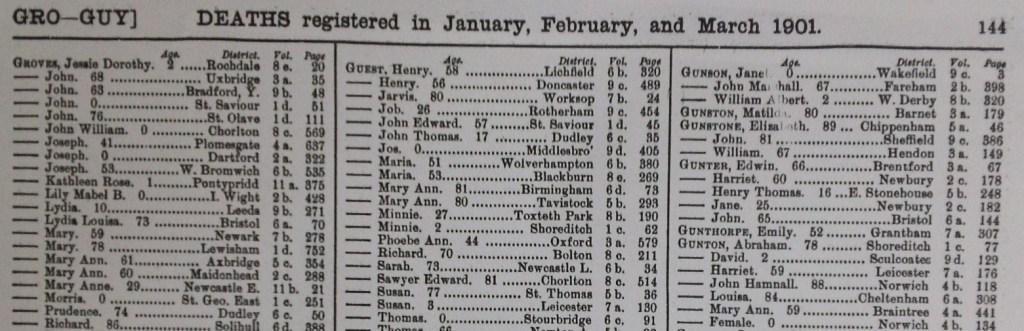 GRO—GUY] DEATHS registered in January, February, and March 1901. 144
Age. District. Vol. Page
GROVES, Jessie Dorothy. 2 ......Rochdale 8 e. 20
—— John. 68 ..................Uxbridge 3 a. 35
—— John. 63............Bradford, Y. 9 b. 48
—— John. 0...............St. Saviour 1 d. 51
—— John. 76...............St. Olave 1 d. 111
—— John William. 0 ......Chorlton 8 c. 569
—— Joseph. 41............Plomesgate 4 a. 637
—— Joseph. 0 ...............Dartford 2 a. 322
—— Joseph. 53.........W. Bromwich 6 b. 535
—— Kathleen Rose. 1......Pontypridd 11 a. 375
—— Lily Mabel B. 0............I. Wight 2 b. 428
—— Lydia. 10.....................Leeds 9 b. 271
—— Lydia Louisa. 73 ............Bristol 6 a. 70
—— Mary. 59 ..................Newark 7 b. 278
—— Mary. 78 ...............Lewisham 1 d. 752
—— Mary Ann. 61............Axbridge 5 c. 354
—— Mary Ann. 60 .........Maidenhead 2 c. 288
—— Mary Anne. 29.........Newcastle E. 11 b. 21
—— Morris. 0 ............St. Geo. East 1 c. 251
—— Prudence. 74 ...............Dudley 6 c. 50
—— Richard. 86...............Solihull 6 d. 388
Age. District. Vol. Page
GUEST, Henry. 58 ..................Lichfield 6 b. 320
—— Henry. 56 ...............Doncaster 9 c. 489
—— Jarvis. 80 ...............Worksop 7 b. 24
—— Job. 26..................Rotherham 9 c. 454
—— John Edward. 57......St. Saviour 1 d. 45
—— John Thomas. 17 ............Dudley 6 c. 35
—— Jos. 0..................Middlesbro' 9 d. 405
—— Maria. 51 .........Wolverhampton 6 b. 380
—— Maria. 53..................Blackburn 8 e. 269
—— Mary Ann. 81.........Birmingham 6 d. 73
—— Mary Ann. 80 ............Tavistock 5 b. 293
—— Minnie. 27............Toxteth Park 8 b. 190
—— Minnie. 2 ...............Shoreditch 1 c. 62
—— Phoebe Ann. 44 ............Oxford 3 a. 579
—— Richard. 70 ..................Bolton 8 c. 211
—— Sarah. 73...............Newcastle L. 6 b. 34
—— Sawyer Edward. 81 ......Chorlton 8 c. 514
—— Susan. 77 ...............St. Thomas 5 b. 36
—— Susan. 3..................Leicester 7 a. 130
—— Thomas. 0............Stourbridge 6 c. 91
—— Thomas. 66
Age. District. Vol. Page
GUNSON, Jane. 0...............Wakefield 9 c. 3
—— John Ma hall. 67............Fareham 2 b. 398
—— William A bert. 2 ......W. Derby 8 b. 320
GUNSTON, Matilda. 80 ............Barnet 3 a. 179
GUNSTONE, Eliza th. 89 ... Chippenham 5 a. 46
—— John. 81..................Sheffield 9 c. 386
—— William. 67 ...............Hendon 3 a. 149
GUNTER, Edwin. 66............Brentford 3 a. 67
—— Harriet. 60 ...............Newbury 2 c. 178
—— Henry Thomas. 16 ...E. Stonehouse 5 b. 248
—— Jane. 25..................Newbury 2 c. 182
—— John. 65.....................Bristol 6 a. 144
GUNTHORPE, Emily. 52 ......Grantham 7 a. 307
GUNTON, Abraham. 78 ......Shoreditch 1 c. 77
—— David. 2 ..................Sculcoates 9 d. 129
—— Harriet. 59 ...............Leicester 7 a. 176
—— John Hamnall. 88.........Norwich 4 b. 118
—— Louisa. 84...............Cheltenham 6 a. 308
—— Mary Ann. 59 ............Braintree 4 a. 441
—— Female. 0 ..................Norwich 4 b. 134